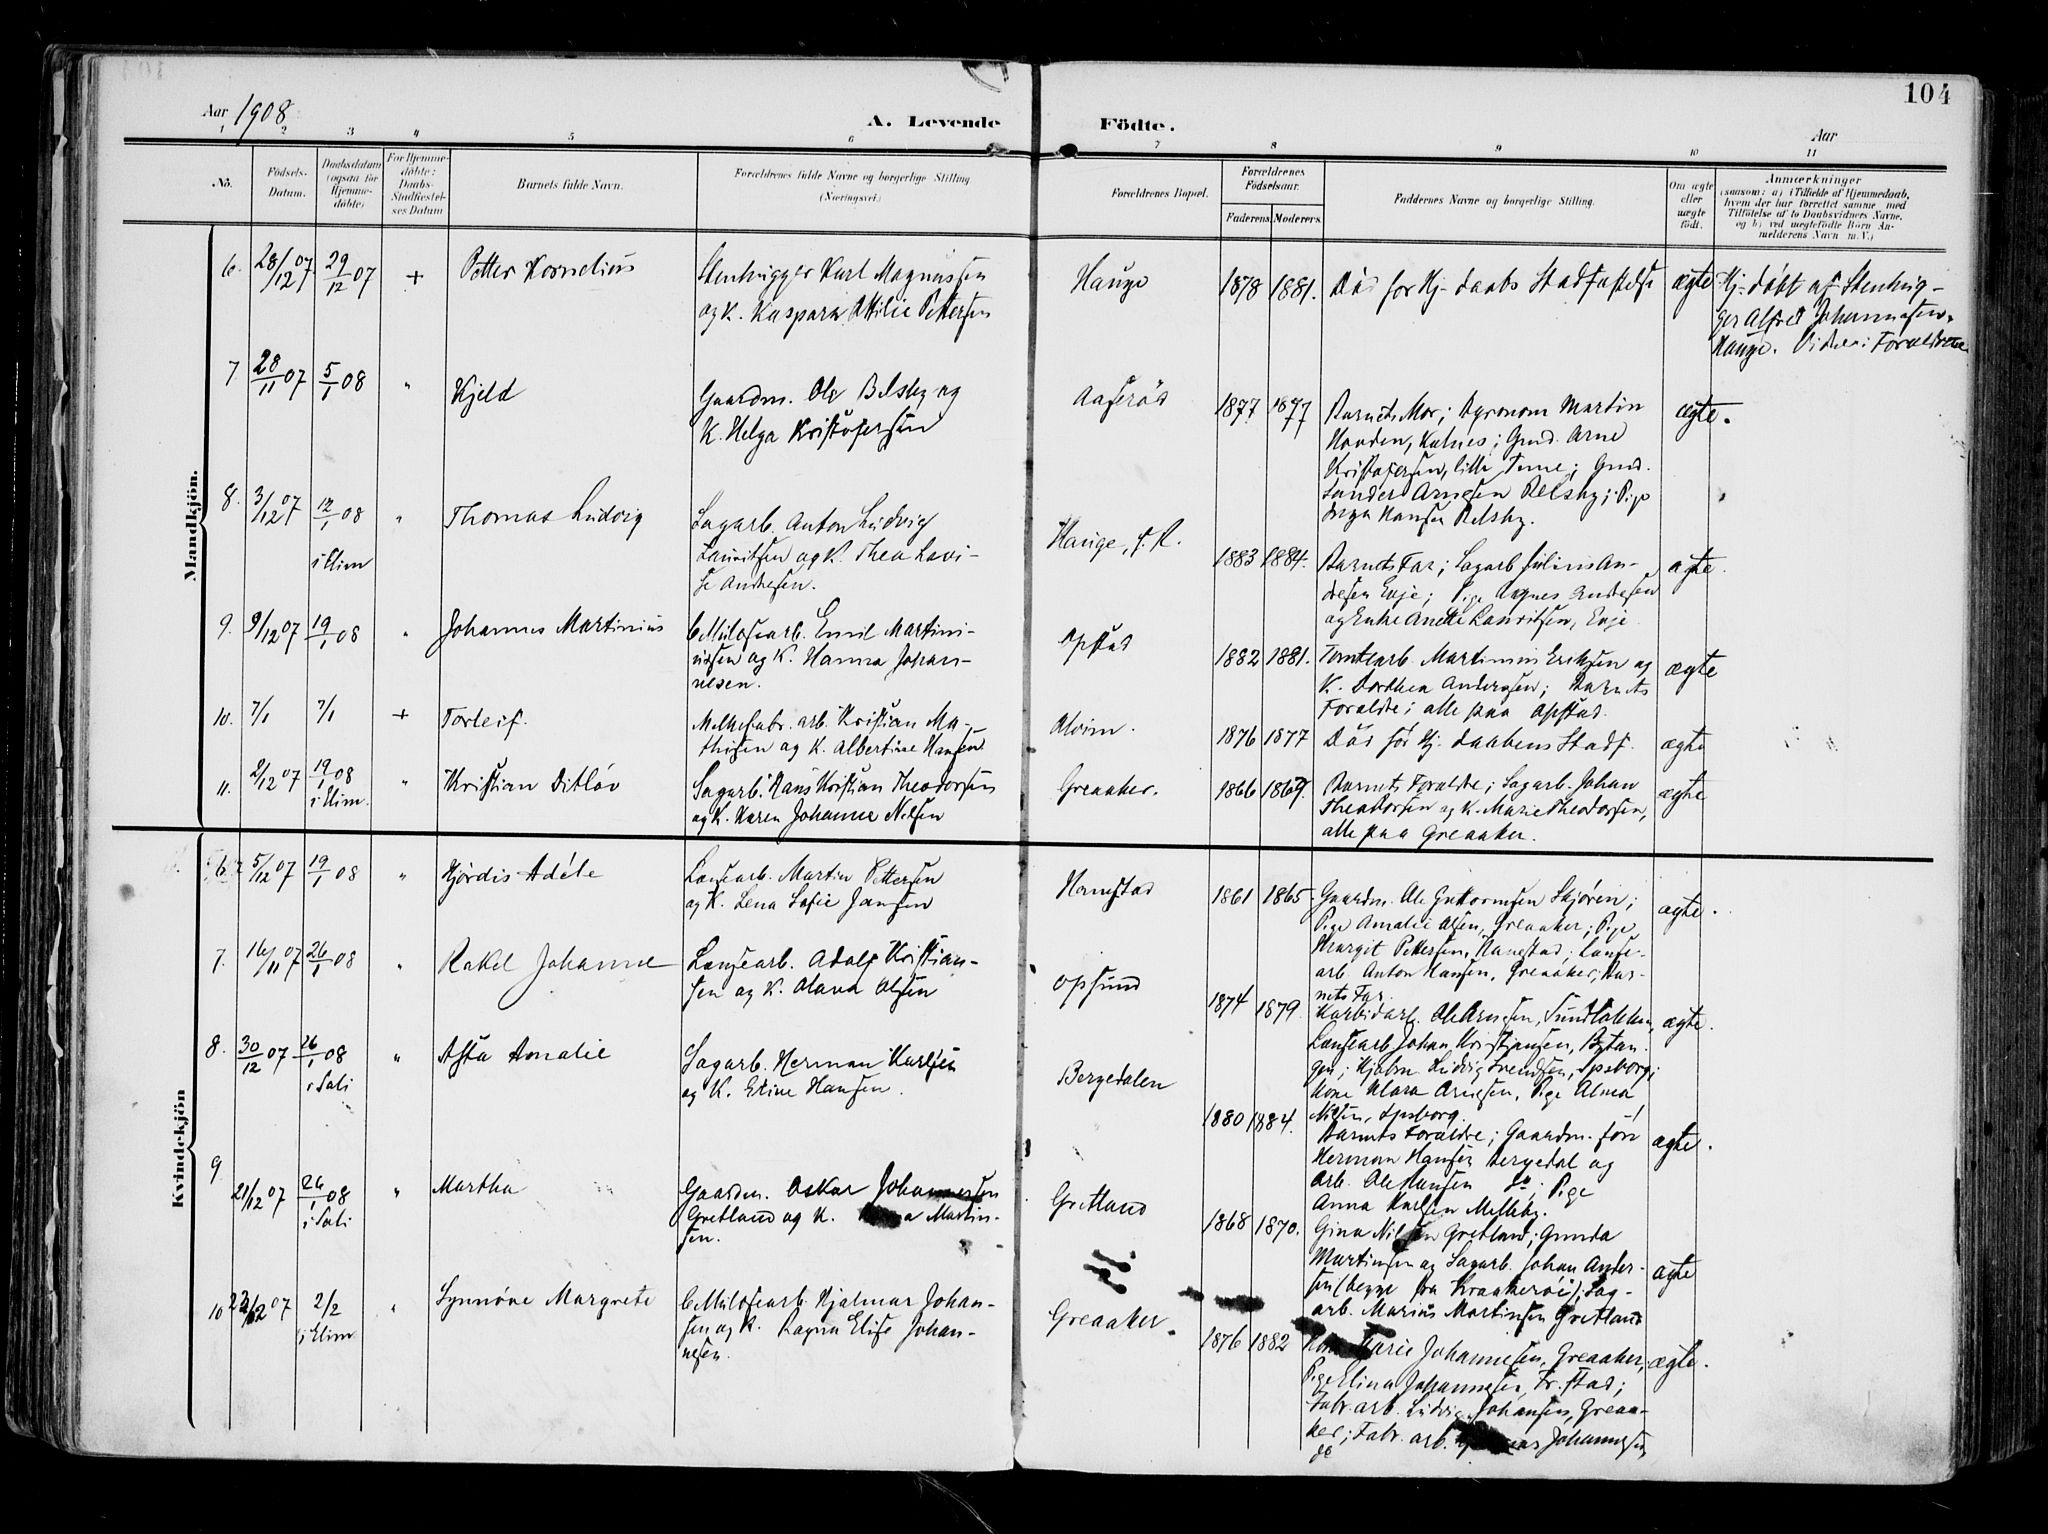 104
Aar 1908
A. Levende Födte.
Aar
1 2 3 4 5 6 7 8 9 10 11
No.
Födsels-Datum.
Daabsdatum (ogsaa för Hjemmedöbte)
For Hjemmedöbte: Daabs-Stadfæstelses Datum
Barnets fulde Navn.
Forældrenes fulde Navne og borgerlige Stilling. (Næringsvei.)
Forældrenes Bopæl.
Forældrenes Födselsaar.
Faderens. Moderens.
Faddernes Navne og borgerlige Stilling.
Om ægte eller uægte födt.
Anmærkninger
(saasom: a) i Tilfælde af Hjemmedaab,
hvem der har forrettet samme med
Tilföielse af to Daabsvidners Navne,
og b) ved uægtefödte Börn An-
melderens Navn m.V.)
Mandkjön.
6. 28/12 07 29/12 07 + Petter Kornelius
Stenhugger Karl Magnussen
og K. Kaspara Ottilie Pettersen
Hauge 1878 1881.
Död för Hj-daabs Stadfæstelse
ægte
Hj-döbt af Stenhug-
ger Alfred Johannesen,
Hauge. Vidner: Forældrene
7 28/11 07 5/1 08 " Kjeld
Gaardm. Ole Belsby og
K. Helga Kristofersen
Aaseröd 1877 1877
Barnets Mor; Agronom Martin
Hovden, Kalnes; Gmd. Arne
Kristofersen, lille Tune; Gmd.
Sander Arnesen Belsby; Pige
Inga Hansen Belsby.
ægte.
8. 3/12 07 12/1 08 i Elim " Thomas Ludvig
Sagarb. Anton Ludvig
Lauritsen og K. Thea Lovi-
se Andresen.
Hauge, f. R. 1883 1884.
Barnets Far; Sagarb Julius An-
dresen Evje; Pige Agnes Andresen
og Enke Anette Lauritsen, Evje
ægte.
9. 9/12 07 19/1 08 " Johannes Martinius
Cellulosearb. Emil Martini-
ussen og K. Hanna Johan-
nesen.
Opstad 1882 1881.
Tomtearb. Martinius Eriksen og
K. Dorthea Andersen; Barnets
Forældre; alle paa Opstad.
ægte
10. 7/1 7/1 + Torleif.
Melkefabr. arb. Kristian Ma-
thisen og K. Albertine Hansen
Alvim. 1876 1877
Död för Hj. daabens Stadf.
ægte
11. 2/12 07 19/1 08 i Elim. " Kristian Ditlöv
Sagarb. Hans Kristian Theodorsen
og K. Karen Johanne Nilsen
Greaaker. 1866 1869.
Barnets Forældre; Sagarb. Johan
Theodorsen og K. Marie Theodorsen,
alle paa Greaaker.
ægte
Kvindekjön
6 5/12 07 19/1 08 " Hjördis Adéle
Lensearb. Martin Pettersen
og K. Lena Sofie Jansen
Hanestad 1861 1865.
Gaardm. Ole Guttormsen Skjören;
Pige Amalie Olsen, Greaaker; Pige
Margit Pettersen, Hanestad; Lense-
arb. Anton Hansen, Greaaker; Bar-
nets Far.
ægte.
7. 16/11 07 26/1 08 " Rakel Johanne
Lensearb. Adolf Kristian-
sen og K. Olava Olsen
Opsund 1874 1879.
Karbidarb. Ole Arnesen, Sundlökken,
Lensearb Johan Kristiansen, Bytan-
gen; Kjöbm Ludvig Svendsen, Spsborg;
Kone Klara Arnesen, Pige Alma
Nilsen, Spsborg.
ægte.
8. 30/12 07 26/1 08 i Soli " Asta Amalie
Sagarb. Herman Karlsen
og K. Eline Hansen.
Bergedalen 1880 1884.
Barnets Forældre; Gaardm. sön
Herman Hansen Bergedal og
Arb. Ole Hansen So; Pige
Anna Karlsen Melleby.
ægte.
9 21/12 07 26/1 08 i Soli " Martha
Gaardm. Oskar Johannessen
Gretland og K. Martin-
sen.
Gretland 1868 1870.
Gina Nilsen Gretland; Gunda
Martinsen og Sagarb. Johan Ander-
sen (begge fra Kraakeröi); Sag-
arb. Marius Martinsen Gretland
ægte
10 22/12 07 2/2 i Elim " Synnöve Margrete
Cellulosearb. Hjalmar Johan-
sen og K. Ragna Elise Johan-
nesen.
Greaaker. 1876 1882
Marie Johannesen, Greaaker,
Pige Elina Johannesen, Fr.stad;
Fabr.arb. Ludvig Johansen, Greaa-
ker; Fabr. arb. Johannesen,
ægte.